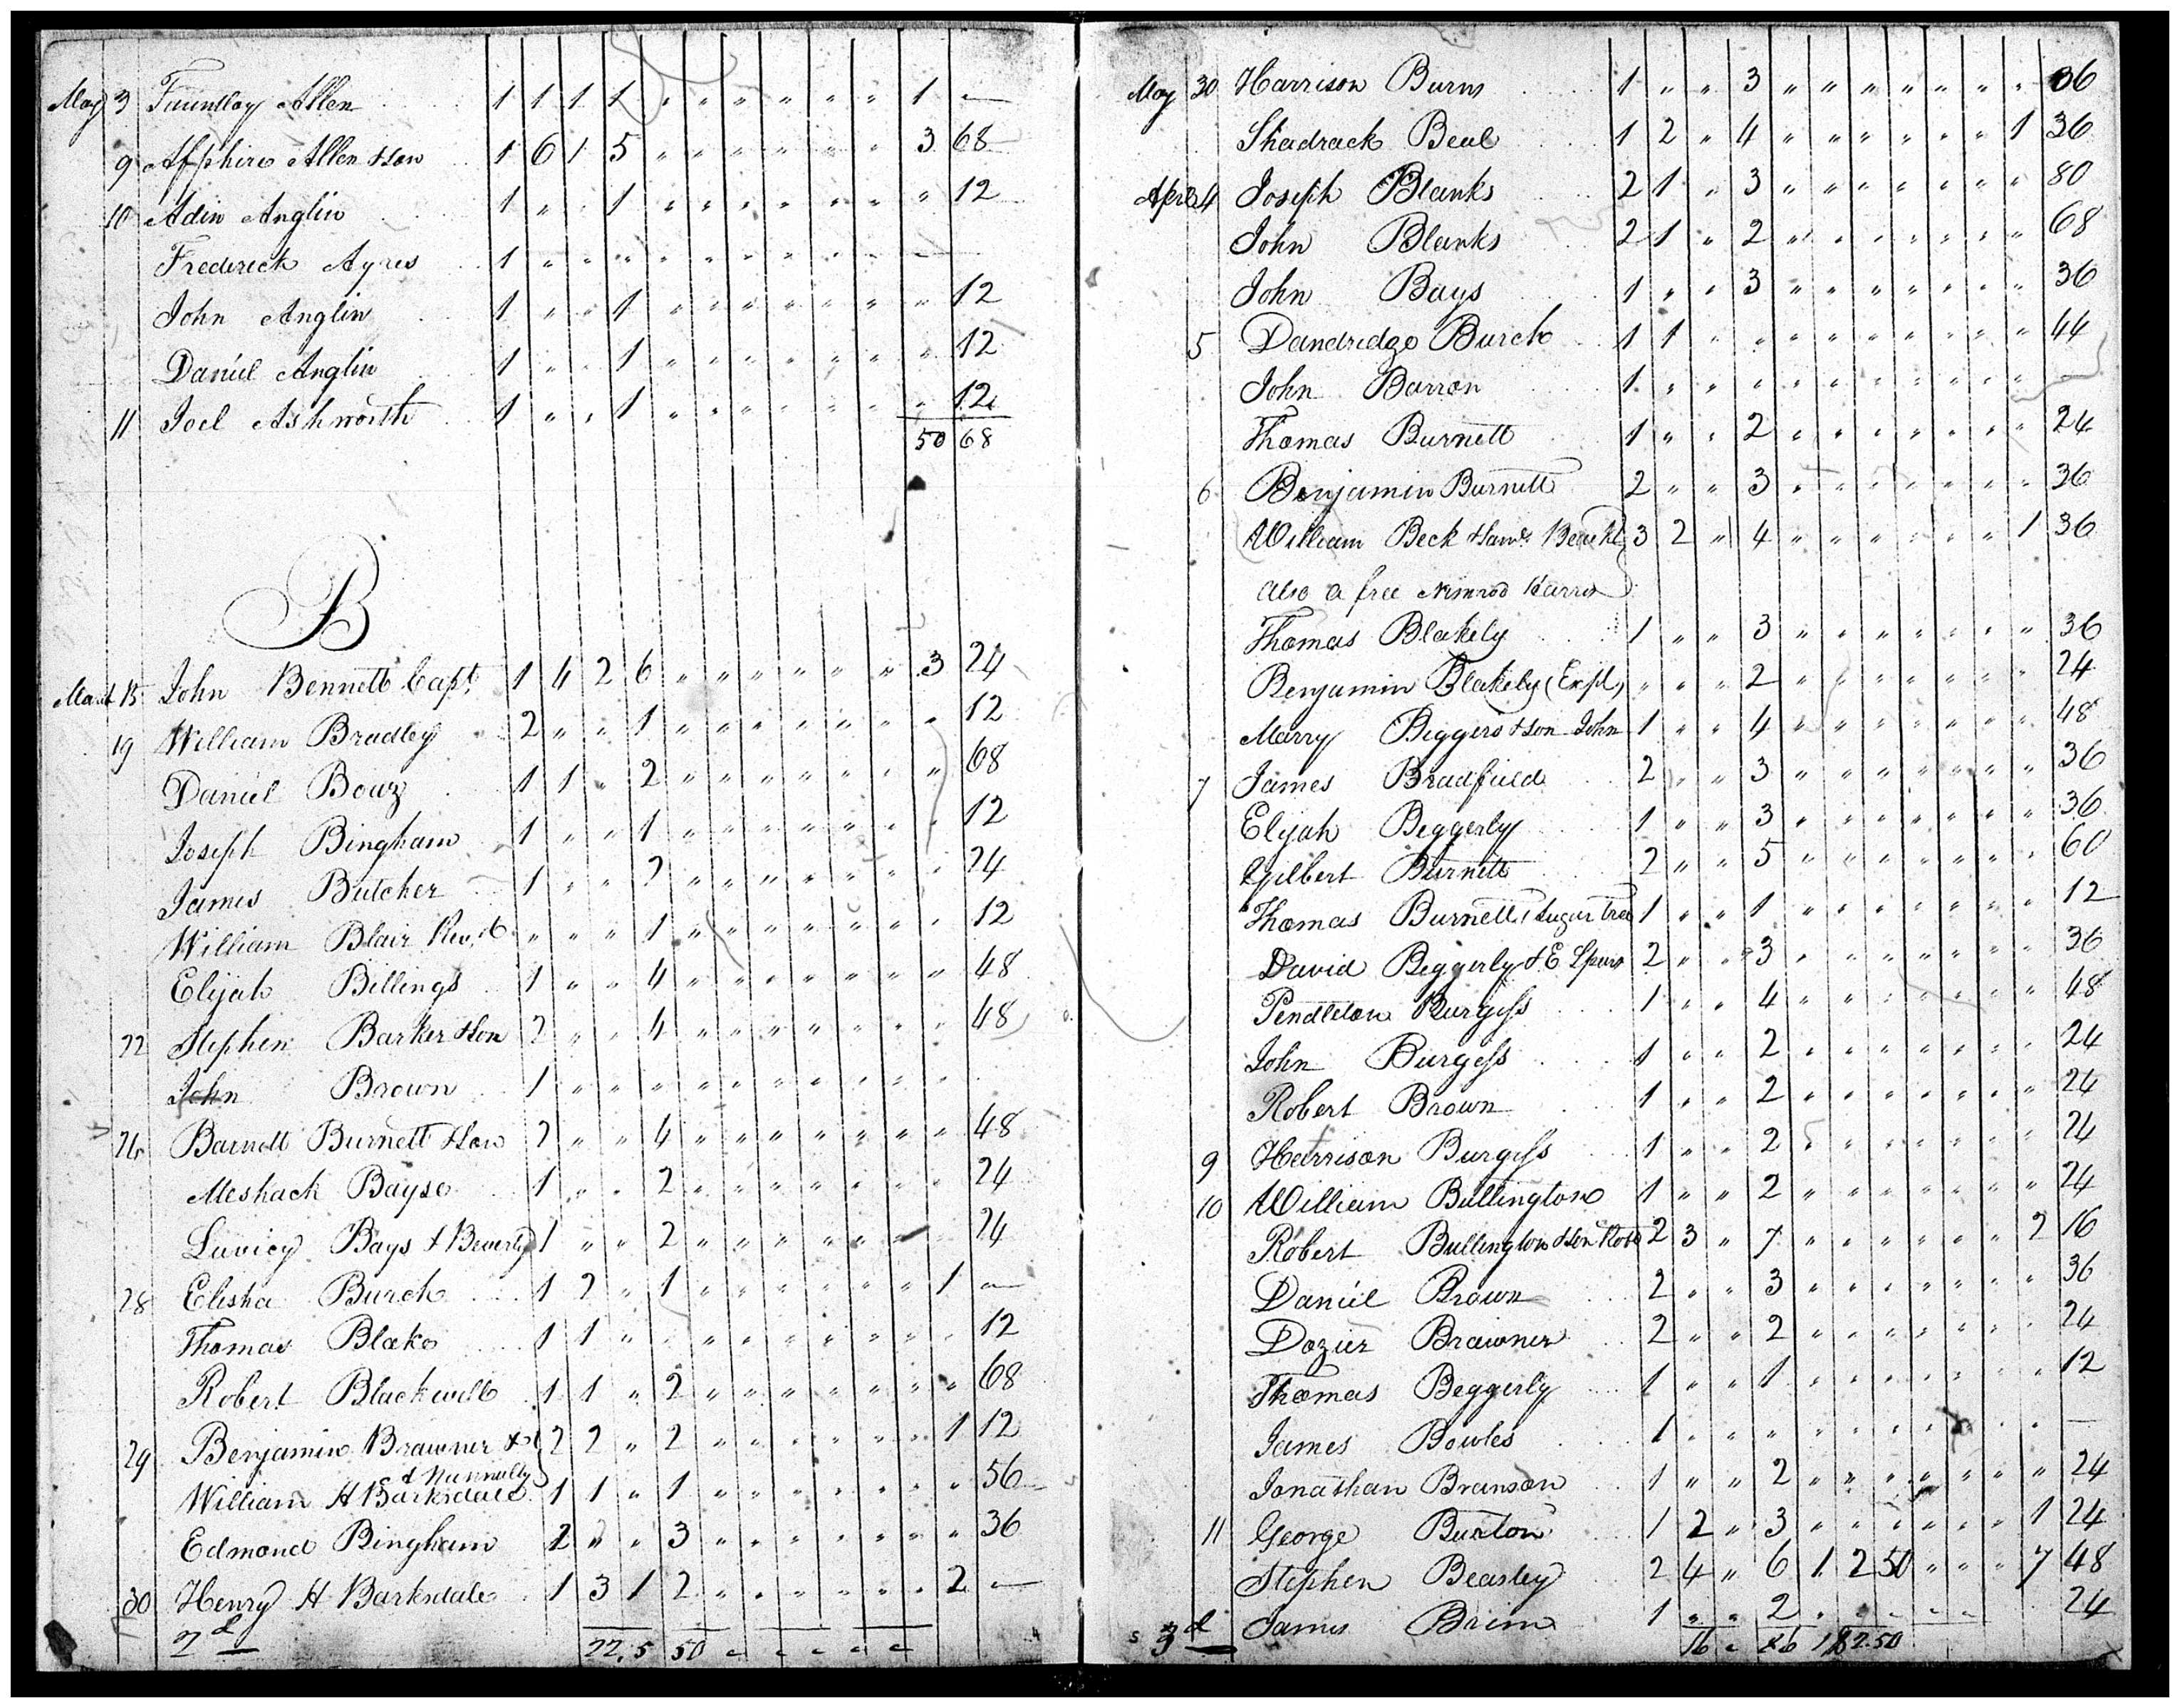 May 3 Fauntlay Allen 1 1 1 1 " " " " " " 1 —
9 Afphire Allen & son 1 6 1 5 " " " " " " 3 68
10 Adin Anglin 1 " " 1 " " " " " " " 12
Frederick Ayres 1 " " " " " " " " " " —
John Anglin 1 " " 1 " " " " " " " 12
Daniel Anglin 1 " " 1 " " " " " " " 12
11 Joel Ashworth 1 " " 1 " " " " " " " 12
50 68
B
March 15 John Bennett Capt. 1 4 2 6 " " " " " " 3 24
19 William Bradley 2 " " 1 " " " " " " " 12
Daniel Bouz 1 1 " 2 " " " " " " " 68
Joseph Bingham 1 " " 1 " " " " " " " 12
James Butcher 1 " " 2 " " " " " " " 24
William Blair Rev. " " " 1 " " " " " " " 12
Elijah Billings 1 " " 4 " " " " " " " 48
22 Stephen Barker & son 2 " " 4 " " " " " " " 48
John Brown 1 " " " " " " " " " "
26 Barnett Burnett & son 2 " " 4 " " " " " " " 48
Meshack Bayse 1 " " 2 " " " " " " " 24
Luvicy Bays & Beverly 1 " " 2 " " " " " " " 24
28 Elisha Burch 1 2 " 1 " " " " " " 1 —
Thomas Blake 1 1 " " " " " " " " " 12
Robert Blackwell 1 1 " 2 " " " " " " " 68
29 Benjamin Brawner & 2 2 " 2 " " " " " " 1 12
& Nunnally
William H Barksdale 1 1 " 1 " " " " " " " 56
Edmond Bingham 2 " " 3 " " " " " " " 36
30 Henry H Barksdale 1 3 1 2 " " " " " " 2 —
2d 22 5 50 " " " " " "
May 30 Harrison Burns 1 " " 3 " " " " " " " 36
Shadrack Beal 1 2 " 4 " " " " " " 1 36
April 4 Joseph Blanks 2 1 " 3 " " " " " " " 80
John Blanks 2 1 " 2 " " " " " " " 68
John Bays 1 " " 3 " " " " " " " 36
5 Dandridge Burch 1 1 " " " " " " " " " 44
John Barron 1 " " " " " " " " " " —
Thomas Burnett 1 " " 2 " " " " " " " 24
6 Benjamin Burnett 2 " " 3 " " " " " " " 36
William Beck & Saml. 3 2 " 4 " " " " " " 1 36
Also a free Nimrod Harris
Thomas Blakely 1 " " 3 " " " " " " " 36
Benjamin Blakely (Expl) " " " 2 " " " " " " " 24
Marry Beggers & son John 1 " " 4 " " " " " " " 48
7 James Bradfield 2 " " 3 " " " " " " " 36
Elijah Beggerly 1 " " 3 " " " " " " " 36
Gilbert Burnett 2 " " 5 " " " " " " " 60
Thomas Burnett, Sugar tree 1 " " 1 " " " " " " " 12
David Beggerly & E Spurs 2 " " 3 " " " " " " " 36
Pendleton Burgess 1 " " 4 " " " " " " " 48
John Burgess 1 " " 2 " " " " " " " 24
Robert Brown 1 " " 2 " " " " " " " 24
9 Harrison Burgess 1 " " 2 " " " " " " " 24
10 William Bullington 1 " " 2 " " " " " " " 24
Robert Bullington & son Robt 2 3 " 7 " " " " " " 2 16
Daniel Brown 2 " " 3 " " " " " " " 36
Dozier Brawner 2 " " 2 " " " " " " " 24
Thomas Beggerly 1 " " 1 " " " " " " " 12
James Bowles 1 " " " " " " " " " " —
Jonathan Branson 1 " " 2 " " " " " " " 24
11 George Buxton 1 2 " 3 " " " " " " 1 24
Stephen Beasley 2 4 " 6 1 2 50 " " " 7 48
James Brim 1 " " 2 " " " " " " " 24
3d 16 " 86 1 82.50